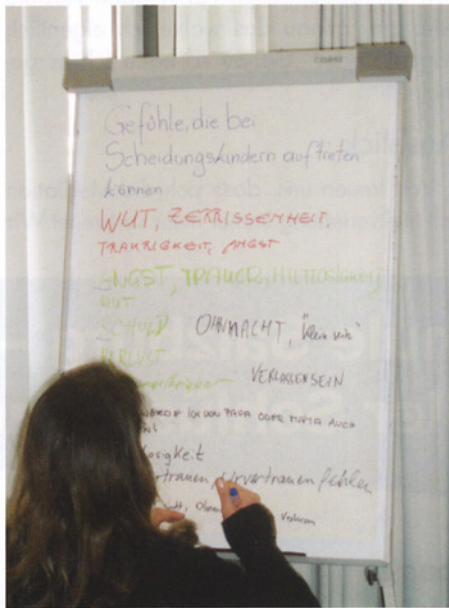 Gefühle, die bei
Scheidungskindern auftreten
können
WUT, ZERRISSENHEIT,
TRAURIGKEIT, ANGST
ANGST, TRAUER, HILFLOSIGKEIT,
WUT
SCHULD OHNMACHT, "klein sein"
VERLUST
VERLASSENSEIN
ICH VON PAPA ODER MAMA AUCH
losigkeit
Urvertrauen fehlen